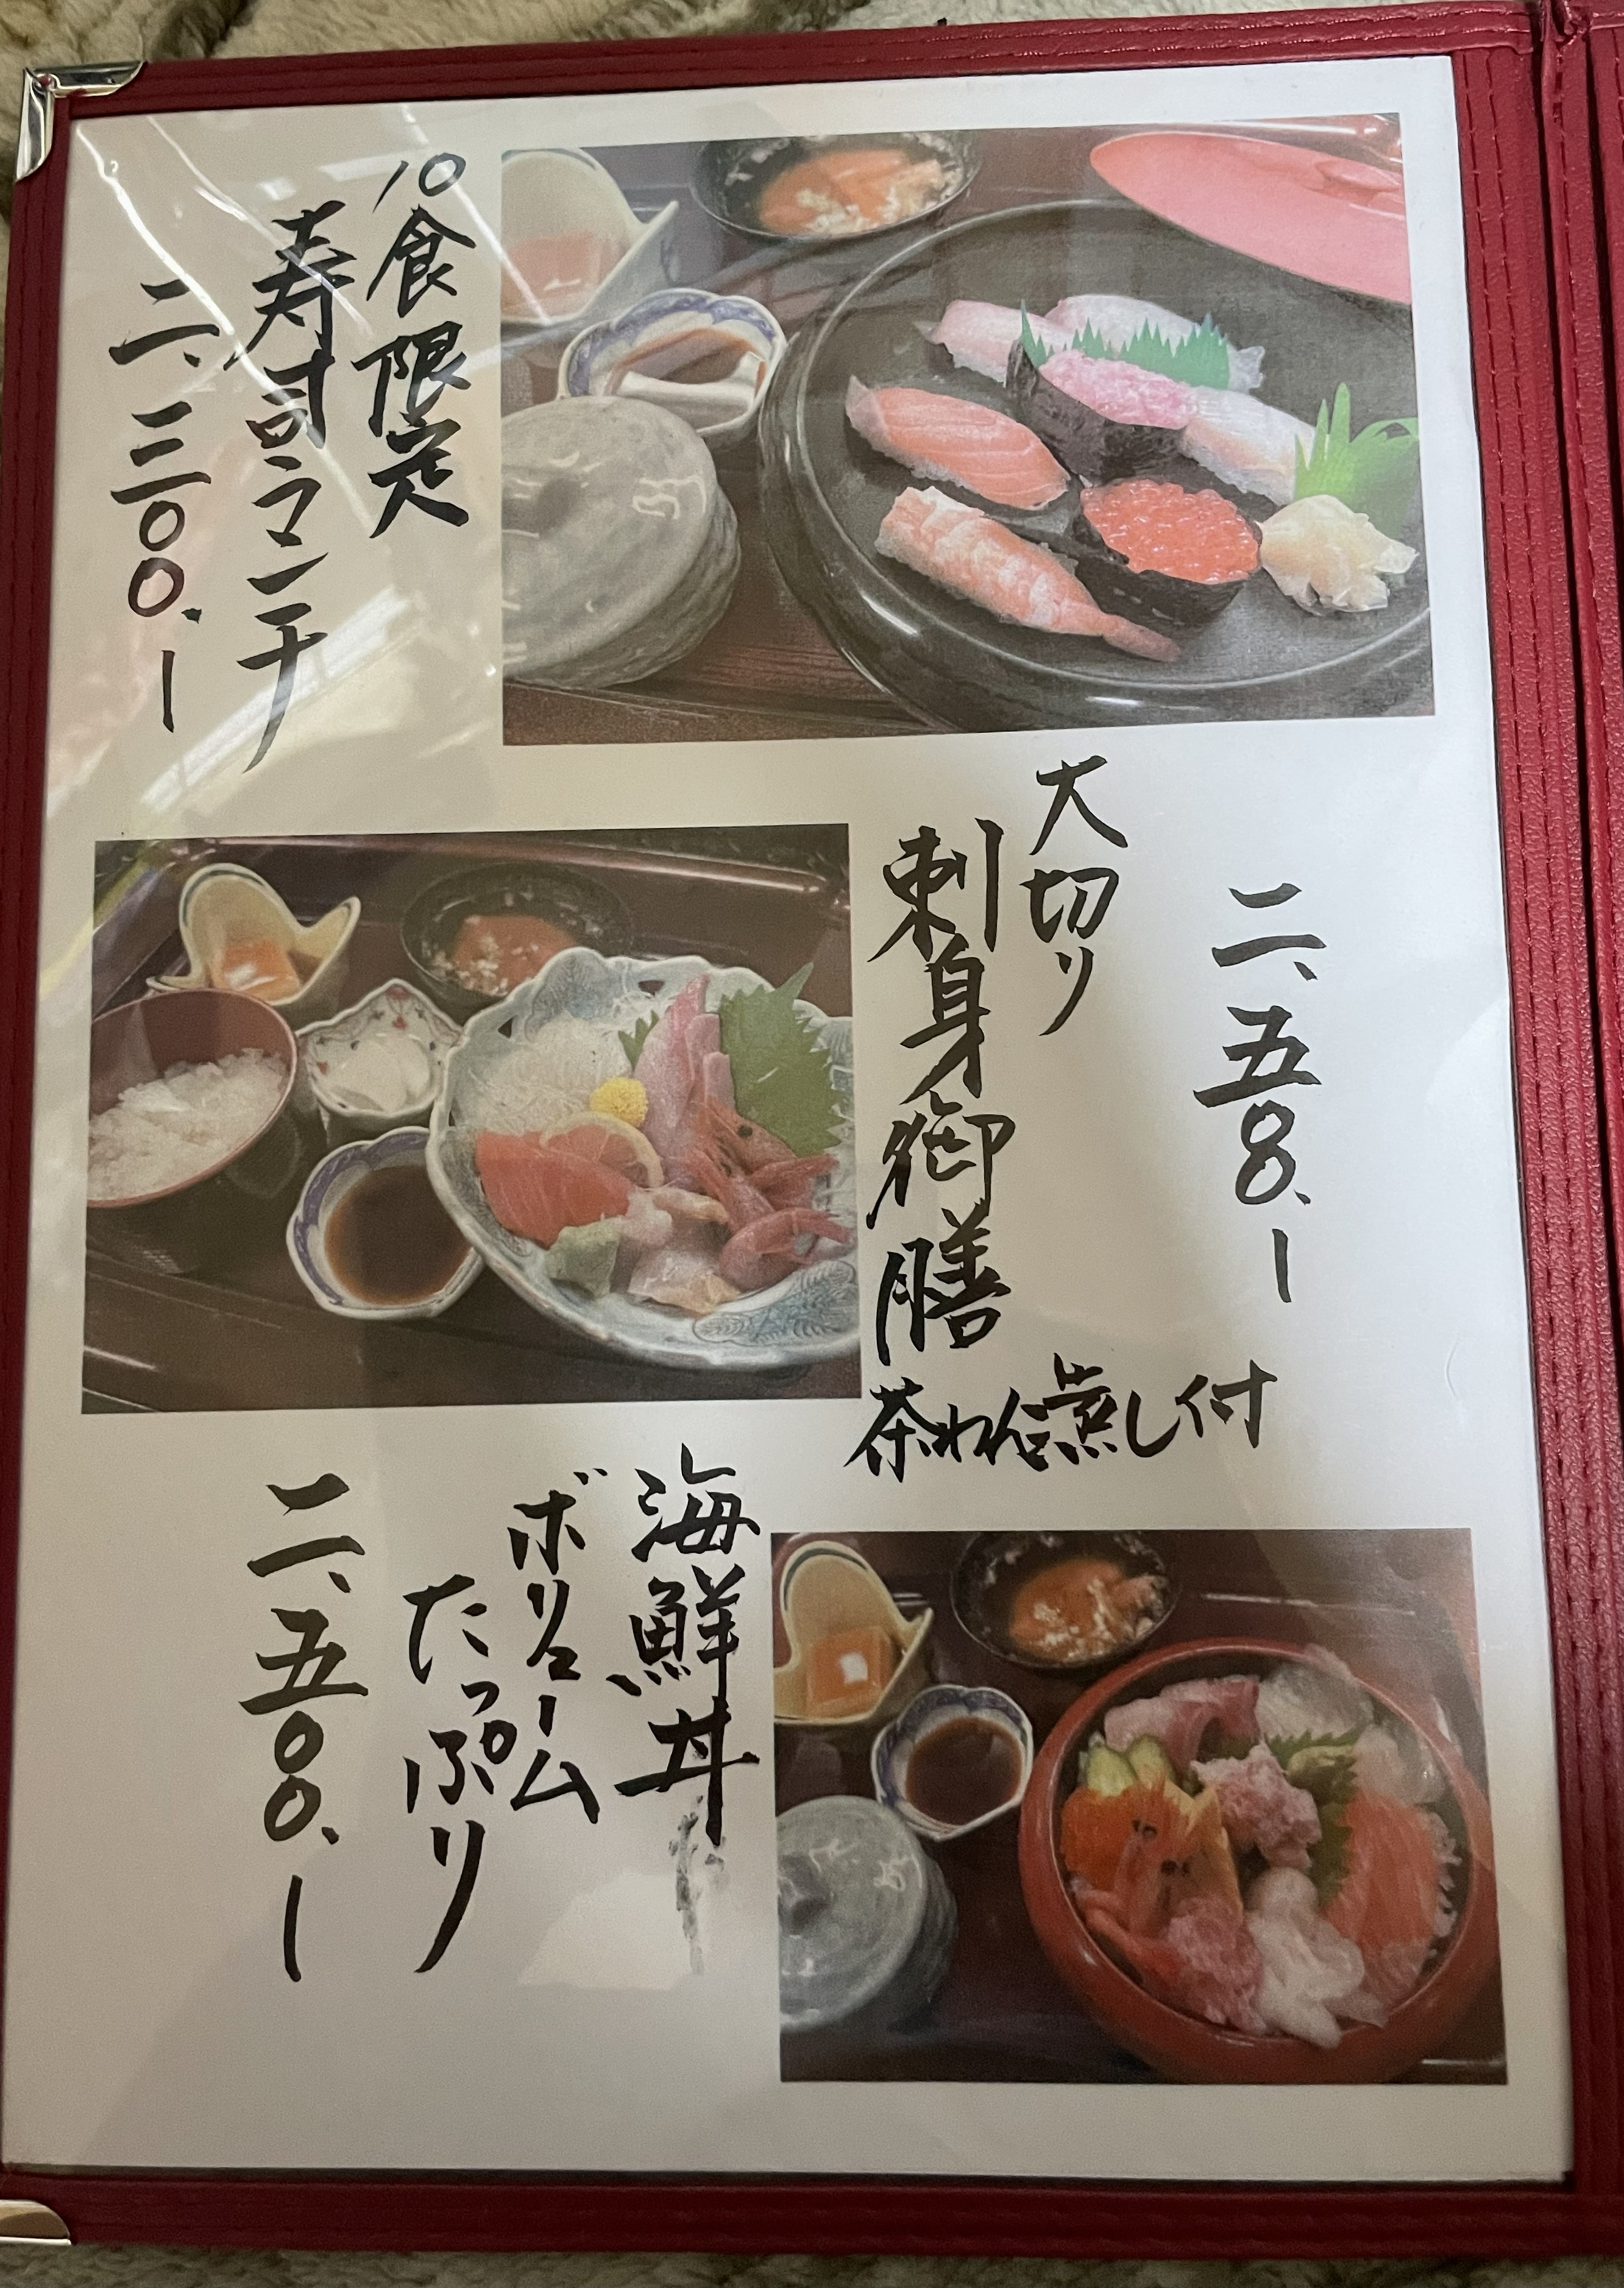 10食限定
寿司ランチ
二、三〇〇、ー
二、五〇〇、ー
大切り
刺身御膳
茶わん蒸し付
海鮮丼
ボリューム
たっぷり
二、五〇〇、ー